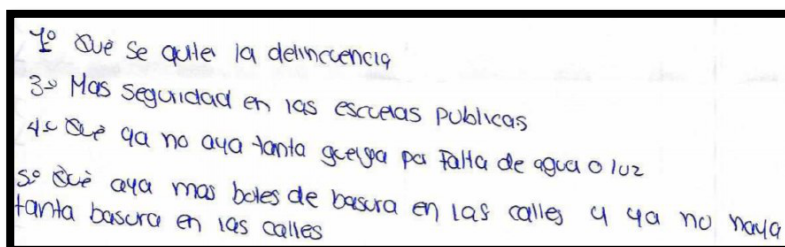 1º Què se quite la delincuencia
3º Mas seguridad en las escuelas publicas
4º Què ya no aya tanta guelga por falta de agua o luz
5º Què aya mas botes de basura en las calles y ya no haya
tanta basura en las calles